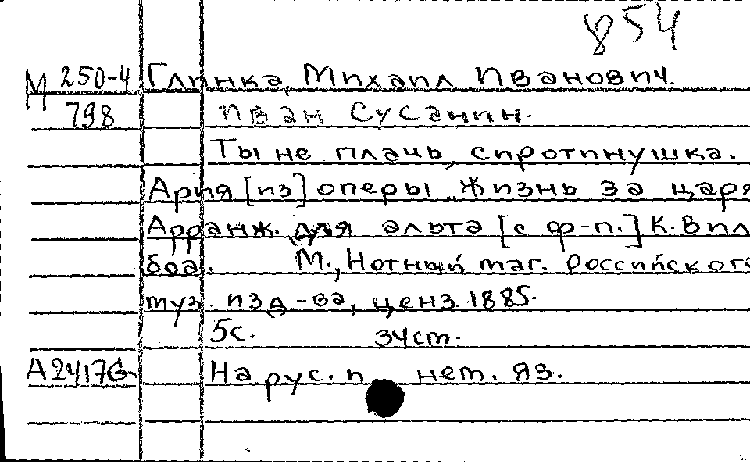 854
М 250-4 Глинка, Михаил Иванович.
798 Иван Сусанин.
Ты не плачь, сиротинушка.
Ария [из] оперы „Жизнь за царя
Арранж. для альта [с ф-п.] К. Вил
боа. М., Нотный маг. Российского
муз. изд-ва, ценз. 1885.
5с. 34см.
А 2417 На рус. и нем. яз.